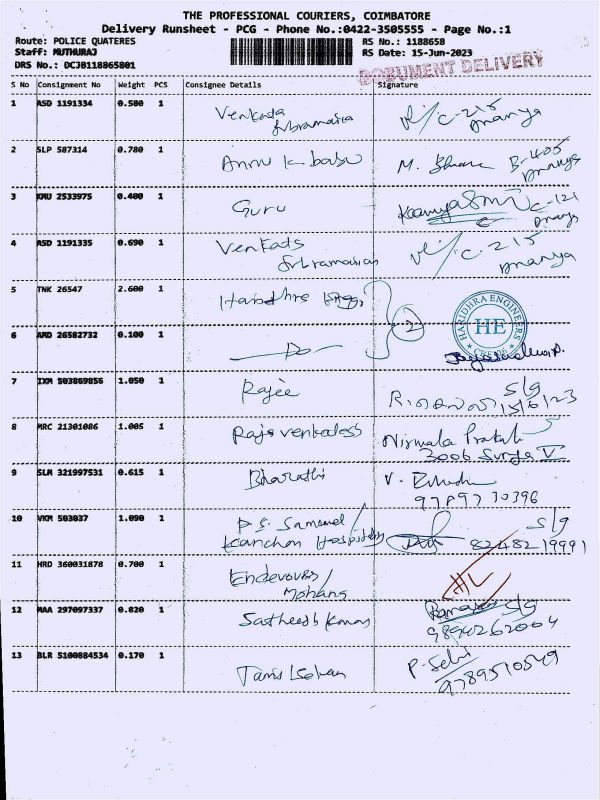 THE PROFESSIONAL COURIERS, COIMBATORE
Delivery Runsheet - PCG - Phone No.:0422-3505555 - Page No.:1
Route: POLICE QUATERES RS No.: 1188658
Staff: MUTHURAJ RS Date: 15-Jun-2023
DRS No.: DCJB118865801
DOCUMENT DELIVERY
S No Consignment No Weight PCS Consignee Details Signature
1 ASD 1191334 0.580 1 Venkata C-215
Subramania Ananya
2 SLP 587314 0.780 1 Annu K babu M. B-405
Ananya
3 KMU 2533975 0.400 1 Guru Kaavya C-121
Ananya
4 ASD 1191335 0.690 1 Venkats C-215
Subramanian Ananya
5 TNK 26547 2.600 1 Haridhra Engg 2
HARIDHRA ENGINEERS
HE
CBE-06
6 ARD 26582732 0.100 1 Do
7 IXM 503869856 1.050 1 Rajee S/g
15/6/23
8 MRC 21301086 1.005 1 Raja Venkatess Nirmala Prakash
300b Surya V
9 SLM 321997531 0.615 1 Bharathi V.
97897 30396
10 VKM 503037 1.090 1 P.S. Samuvel S/g
Kanchan Hospital 82482 19991
11 HRD 360031878 0.700 1 Endevours/
Mohans
12 MAA 297097337 0.820 1 Satheesh Kumar S/g
9894262004
13 BLR 5100884534 0.170 1 P. Selvi
9789510549